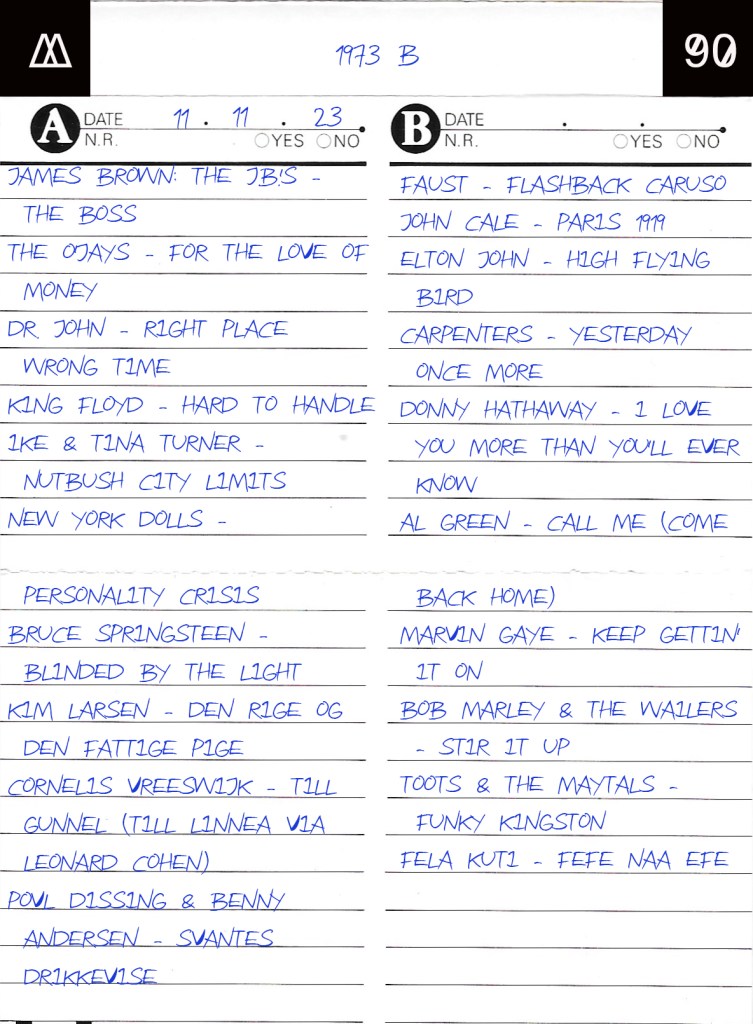 1973 B
90
A DATE 11 . 11 . 23
N.R. YES NO
JAMES BROWN: THE JB'S -
THE BOSS
THE OJAYS - FOR THE LOVE OF
MONEY
DR. JOHN - RIGHT PLACE
WRONG TIME
KING FLOYD - HARD TO HANDLE
IKE & TINA TURNER -
NUTBUSH CITY LIMITS
NEW YORK DOLLS -
PERSONALITY CRISIS
BRUCE SPRINGSTEEN -
BLINDED BY THE LIGHT
KIM LARSEN - DEN RIGE OG
DEN FATTIGE PIGE
CORNELIS VREESWIJK - TILL
GUNNEL (TILL LINNEA VIA
LEONARD COHEN)
POVL DISSING & BENNY
ANDERSEN - SVANTES
DRIKKEVISE
B DATE . . .
N.R. YES NO
FAUST - FLASHBACK CARUSO
JOHN CALE - PARIS 1919
ELTON JOHN - HIGH FLYING
BIRD
CARPENTERS - YESTERDAY
ONCE MORE
DONNY HATHAWAY - I LOVE
YOU MORE THAN YOU'LL EVER
KNOW
AL GREEN - CALL ME (COME
BACK HOME)
MARVIN GAYE - KEEP GETTIN'
IT ON
BOB MARLEY & THE WAILERS
- STIR IT UP
TOOTS & THE MAYTALS -
FUNKY KINGSTON
FELA KUTI - FEFE NAA EFE